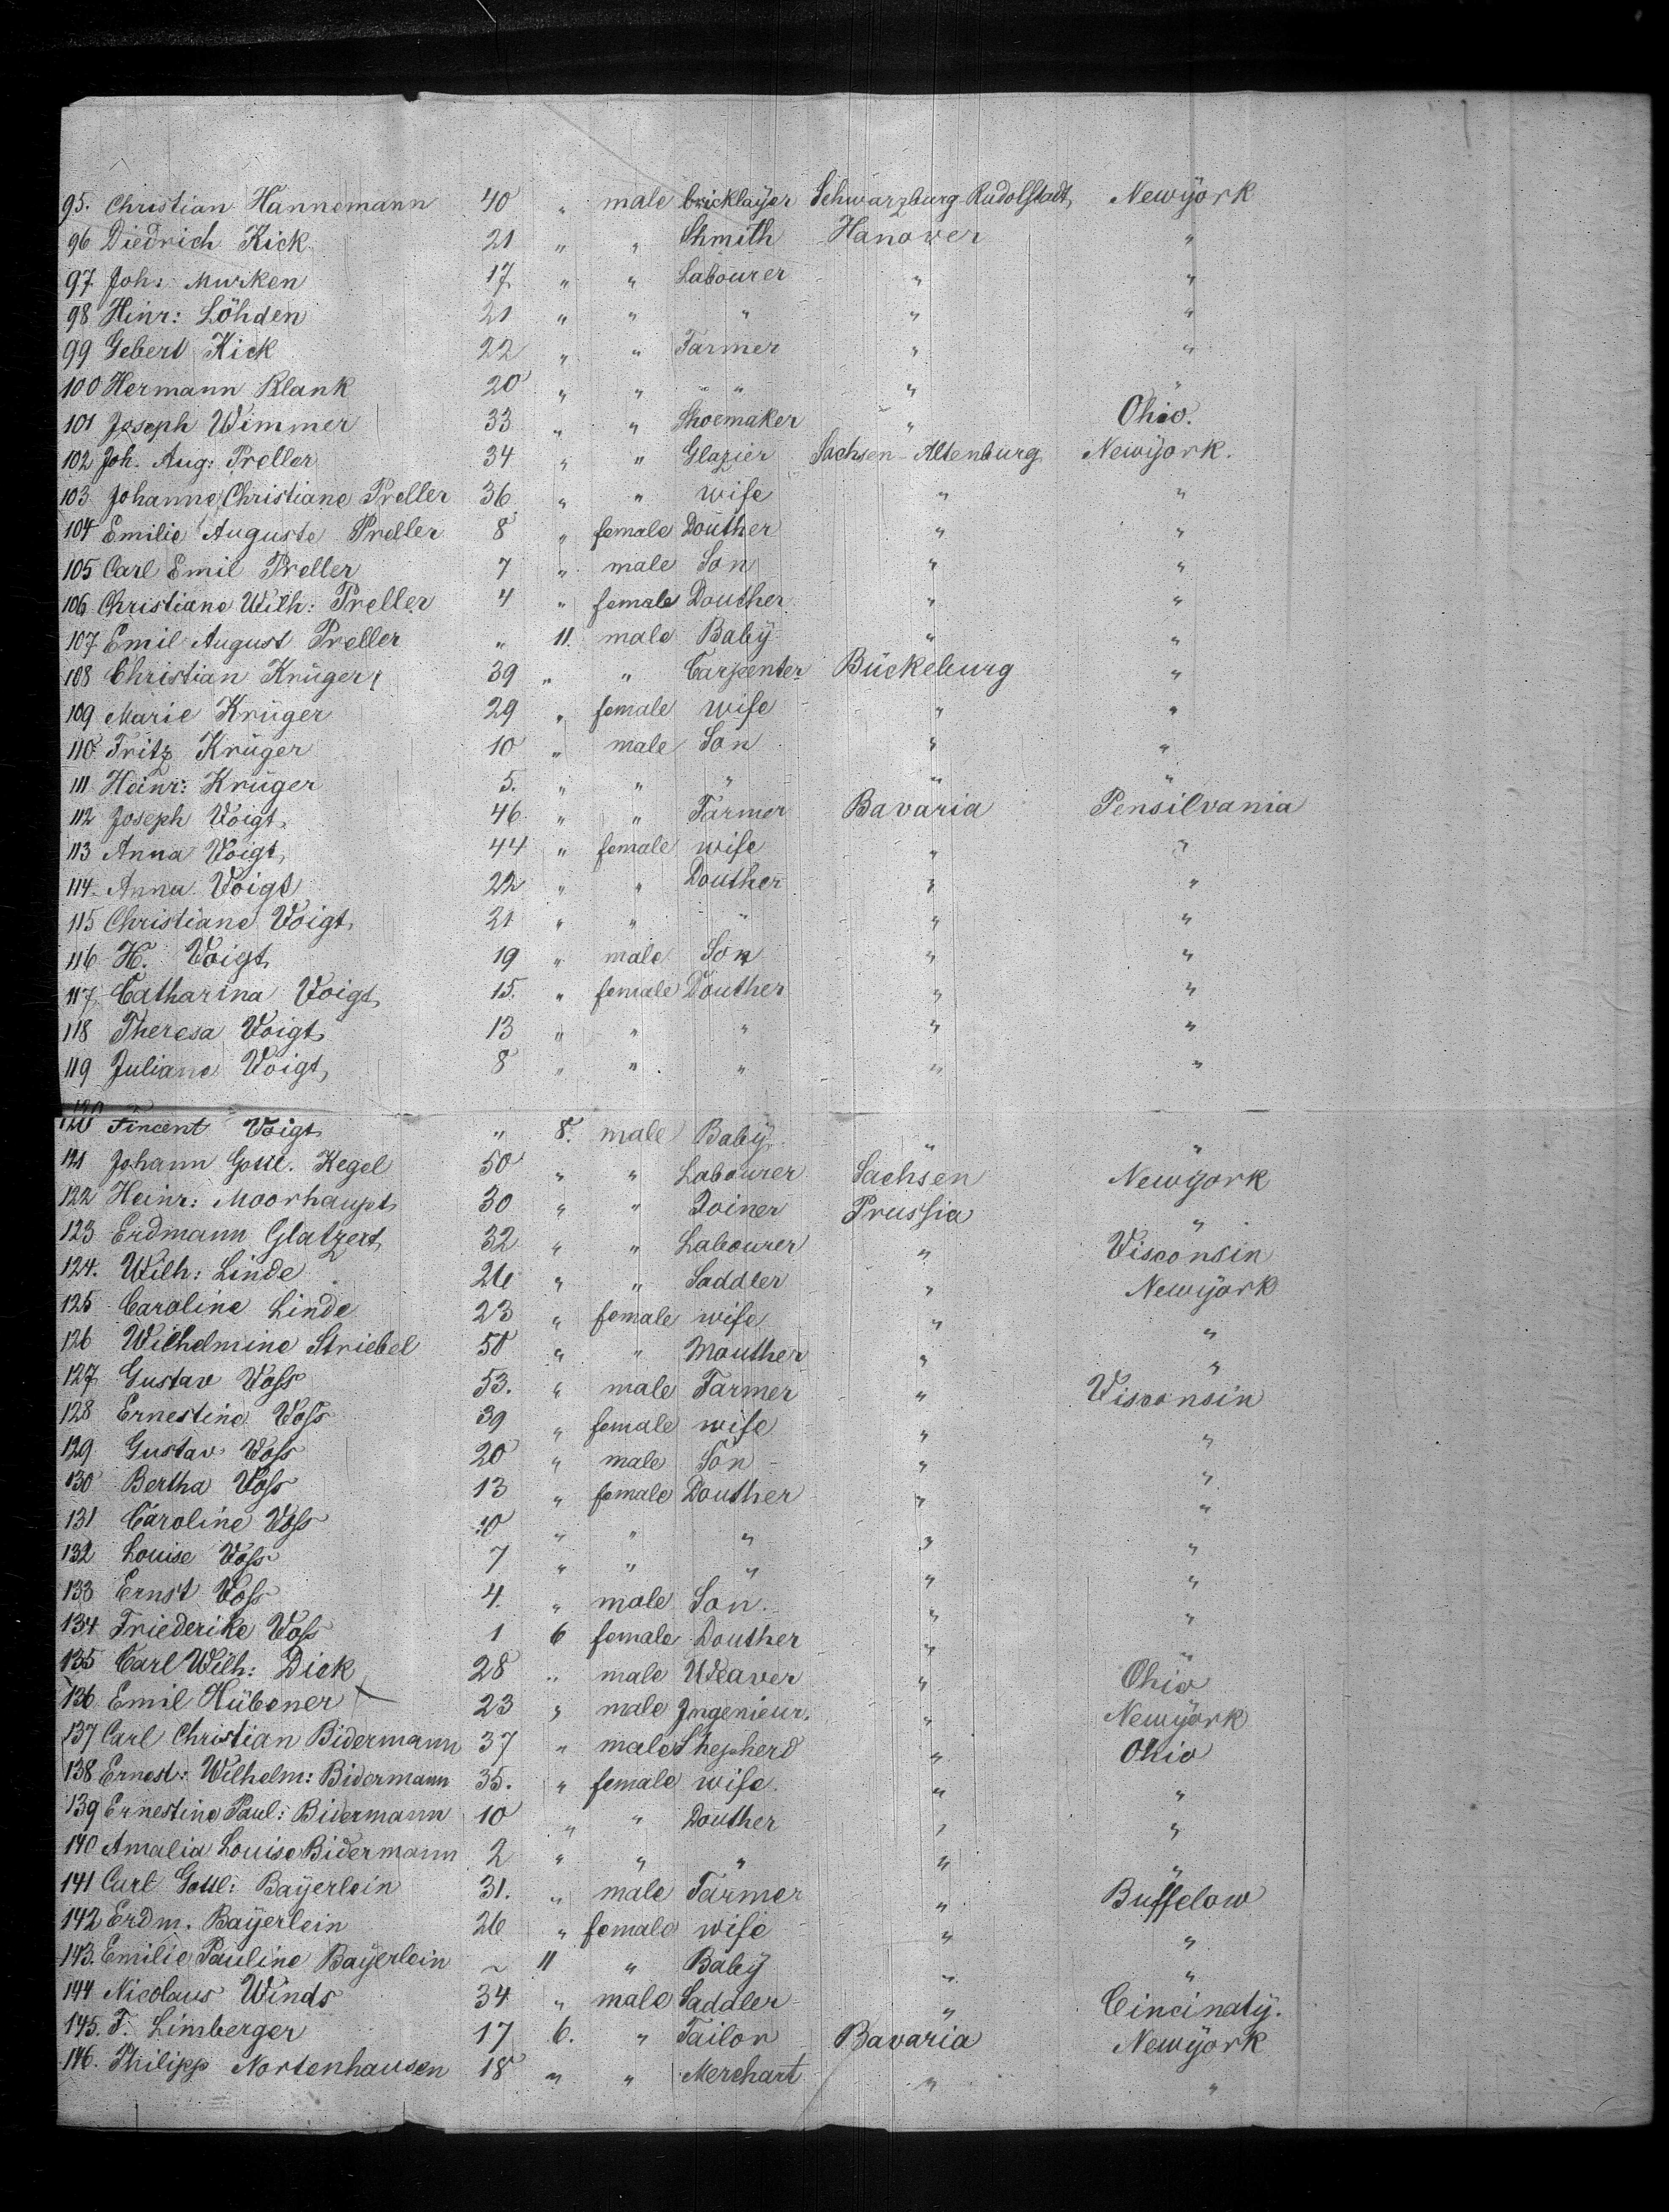 95. Christian Hannemann 40 " male bricklayer Schwarzburg Rudolstadt Newyork
96 Diedrich Kick 21 " " Shmith Hanover "
97 Joh: Murken 17 " " Labourer " "
98 Hinr: Löhden 21 " " " " "
99 Gebert Kick 22 " " Farmer " "
100 Hermann Blank 20 " " " " "
101 Joseph Wimmer 33 " " Shoemaker " Ohio.
102 Joh. Aug: Preller 34 " " Glazier Sachsen-Altenburg Newyork.
103 Johanne Christiane Preller 36 " " wife " "
104 Emilie Auguste Preller 8 " female Douther " "
105 Carl Emil Preller 7 " male Son " "
106 Christiane Wilh: Preller 4 " female Douther " "
107 Emil August Preller " 11. male Baby " "
108 Christian Krüger 39 " " Carpenter Bückeburg "
109 Marie Krüger 29 " female wife " "
110 Fritz Krüger 10 " male Son " "
111 Heinr: Krüger 5. " " " " "
112 Joseph Voigt 46 " " Farmer Bavaria Pensilvania
113 Anna Voigt 44 " female wife " "
114 Anna Voigt 22 " " Douther " "
115 Christiane Voigt 21 " " " " "
116 H. Voigt 19 " male Son " "
117. Catharina Voigt 15. " female Douther " "
118 Theresa Voigt 13 " " " " "
119 Juliane Voigt 8 " " " " "
120 Fincent Voigt " 8. male Baby " "
121 Johann Gottl. Kegel 50 " " Labourer Sachsen Newyork
122 Heinr: Moorhaupt 30 " " Joiner Prussia "
123 Erdmann Glatzert 32 " " Labourer " Visconsin
124. Wilh: Linde 26 " " Saddler " Newyork
125 Caroline Linde 23 " female wife " "
126 Wilhelmine Striebel 50 " " Mouther " "
127 Gustav Voss 53. " male Farmer " Visconsin
128 Ernestine Voss 39 " female wife " "
129 Gustav Voss 20 " male Son " "
130 Bertha Voss 13 " female Douther " "
131 Caroline Voss 10 " " " " "
132 Louise Voss 7 " " " " "
133 Ernst Voss 4. " male Son. " "
134 Friederike Voss 1 6 female Douther " "
135 Carl Wilh: Dick 28 " male Weaver " Ohio
136 Emil Hübener 23 " male Ingenieur. " Newyork
137 Carl Christian Bidermann 37 " male Shepherd " Ohio
138 Ernest: Wilhelm: Bidermann 35. " female wife. " "
139 Ernestine Paul: Bidermann 10 " " Douther " "
140 Amalia Louise Bidermann 2 " " " " "
141 Carl Gottl: Bayerlein 31. " male Farmer " Buffelow
142 Erdm. Bayerlein 26 " female wife " "
143. Emilie Pauline Bayerlein ~ 11 " Baby " "
144 Nicolaus Winds 34 " male Saddler " Cincinaty.
145. F. Limberger 17 6. " Tailor Bavaria Newyork
146. Philipp Nortenhausen 18 " " Merchart " "